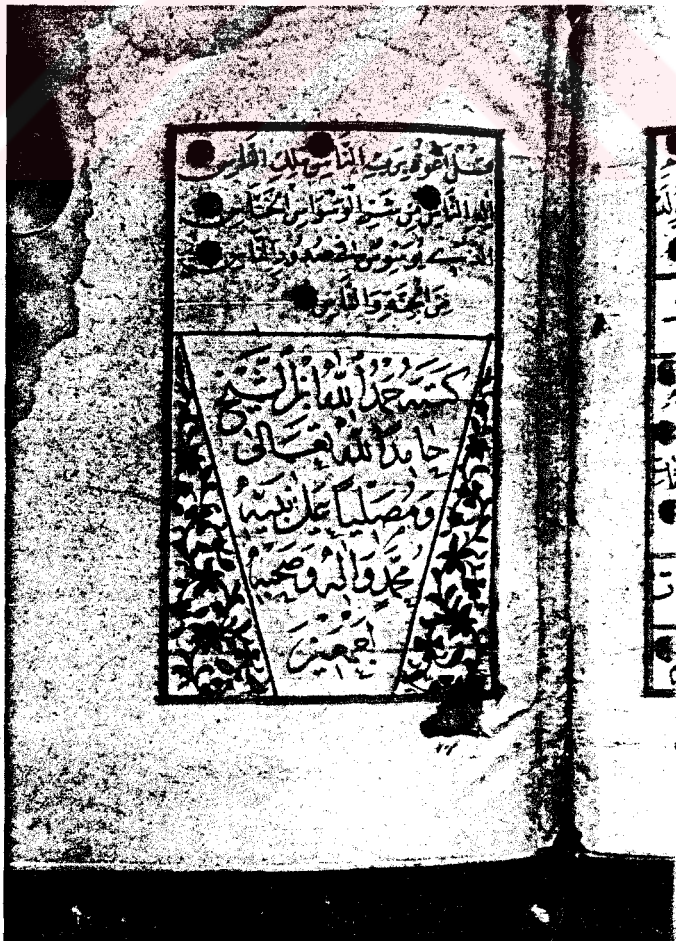 قُلْ أَعُوذُ بِرَبِّ النَّاسِ مَلِكِ النَّاسِ
إِلَهِ النَّاسِ مِنْ شَرِّ الْوَسْوَاسِ الْخَنَّاسِ
الَّذِي يُوَسْوِسُ فِي صُدُورِ النَّاسِ
مِنَ الْجِنَّةِ وَالنَّاسِ
كَتَبَهُ حَمْدُ اللهِ ابْنُ الشَّيْخِ
حَامِدًا لِلهِ تَعَالَى
وَمُصَلِّيًا عَلَى نَبِيِّهِ
مُحَمَّدٍ وَآلِهِ وَصَحْبِهِ
أَجْمَعِينَ